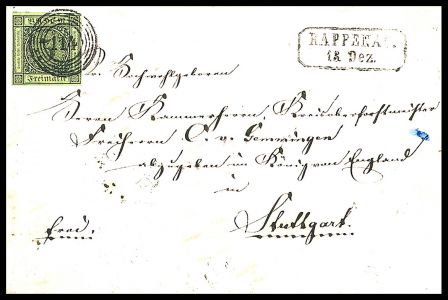 BADEN
Freimarke
114
RAPPENAU.
15 Dez.
Sr. Hochwohlgeboren
Herrn Kammerherrn, Kreisoberforstmeister
Freiherrn C. v. Gemmingen
abzugeben im König von England
in
Stuttgart.
frco.